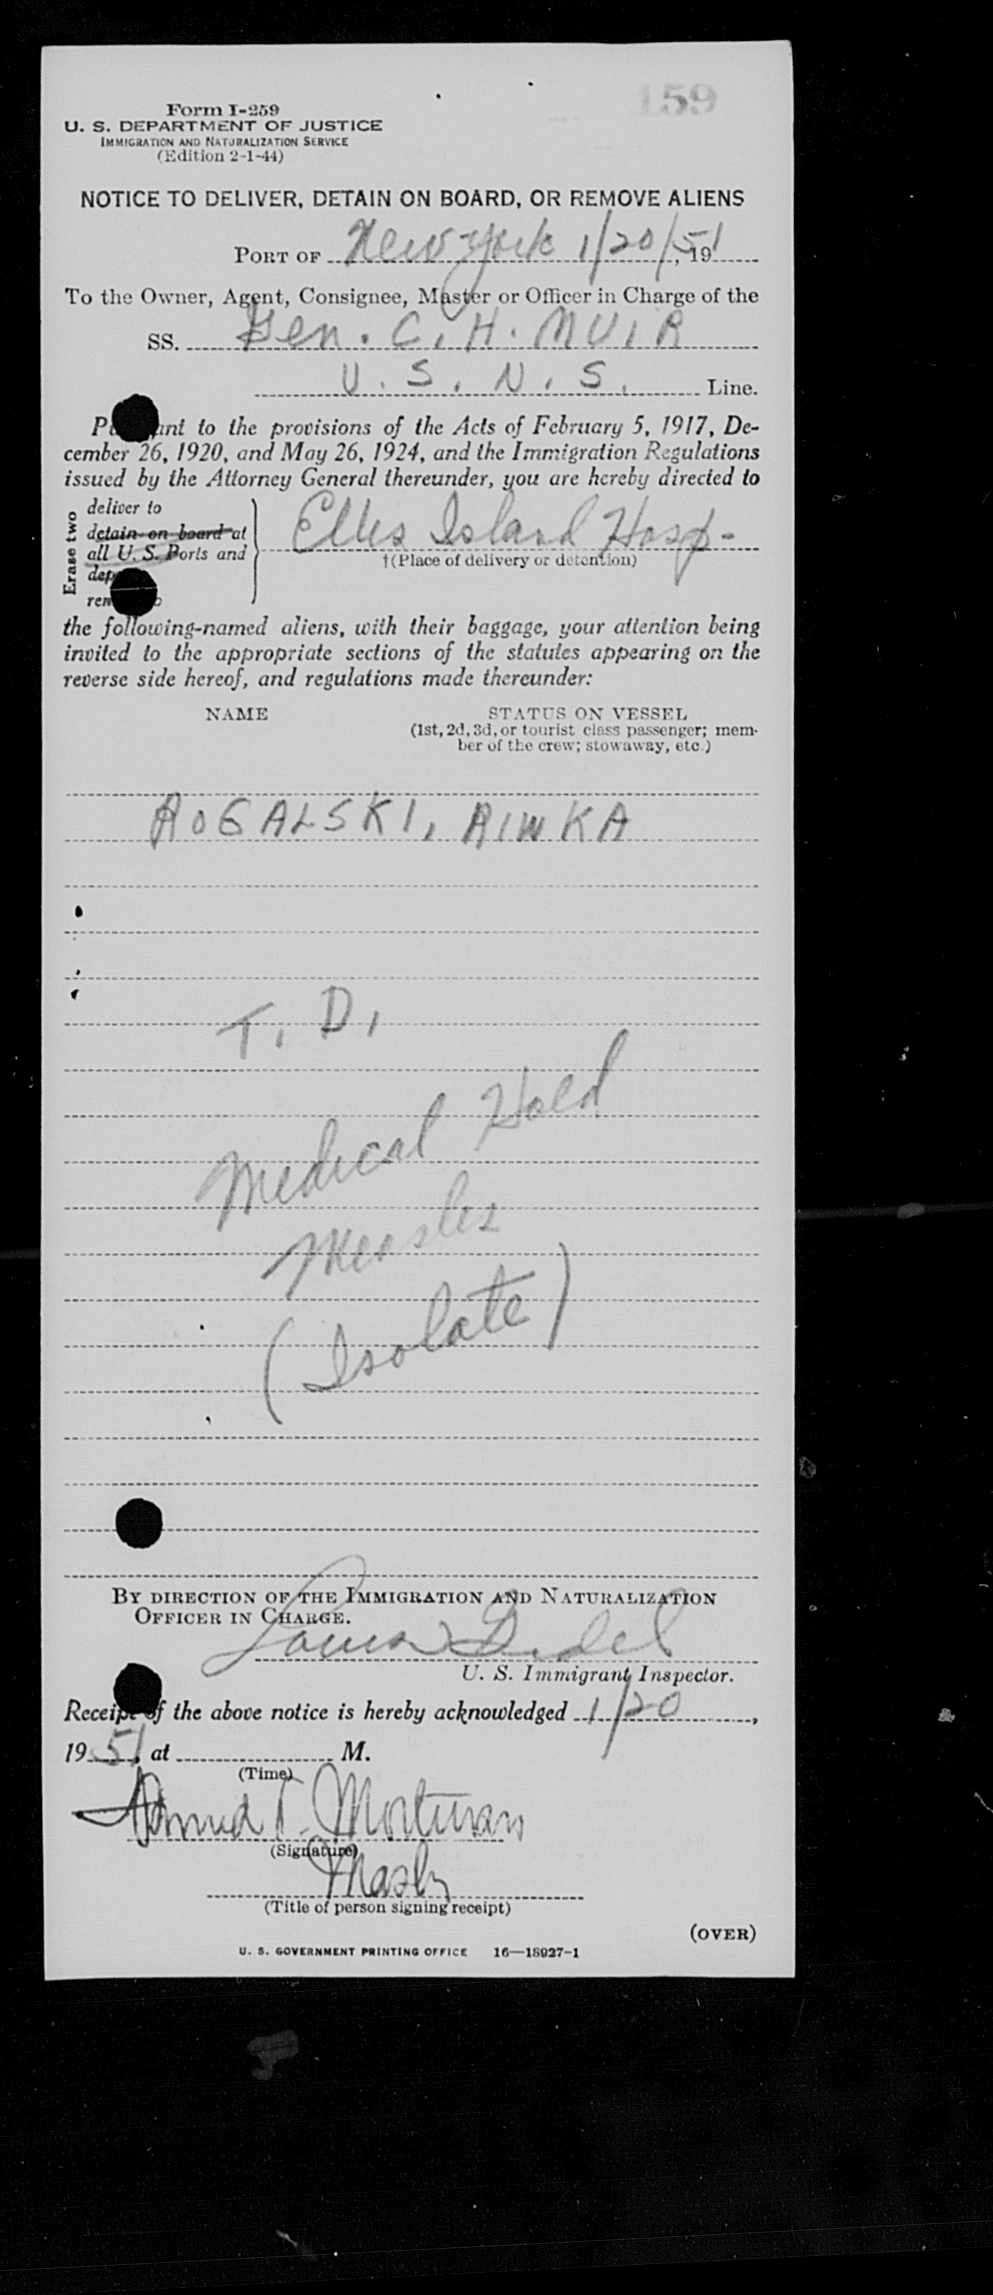 159
Form I-259
U. S. DEPARTMENT OF JUSTICE
IMMIGRATION AND NATURALIZATION SERVICE
(Edition 2-1-44)
NOTICE TO DELIVER, DETAIN ON BOARD, OR REMOVE ALIENS
PORT OF New York 1/20/51, 19
To the Owner, Agent, Consignee, Master or Officer in Charge of the
SS. Gen. C. H. MUIR
U. S. N. S. Line.
to the provisions of the Acts of February 5, 1917, De-
cember 26, 1920, and May 26, 1924, and the Immigration Regulations
issued by the Attorney General thereunder, you are hereby directed to
Erase two
deliver to
detain on board at
all U. S. Ports and
Ellis Island Hosp.
†(Place of delivery or detention)
the following-named aliens, with their baggage, your attention being
invited to the appropriate sections of the statutes appearing on the
reverse side hereof, and regulations made thereunder:
NAME
STATUS ON VESSEL
(1st, 2d, 3d, or tourist class passenger; mem-
ber of the crew; stowaway, etc.)
ROGALSKI, RIWKA
T. D.
Medical Hold
Measles
(Isolate)
BY DIRECTION OF THE IMMIGRATION AND NATURALIZATION
OFFICER IN CHARGE.
Louis
U. S. Immigrant Inspector.
Receipt of the above notice is hereby acknowledged 1/20,
1951, at M.
(Time)
(Signature)
(Title of person signing receipt)
(OVER)
U. S. GOVERNMENT PRINTING OFFICE 16—18927-1